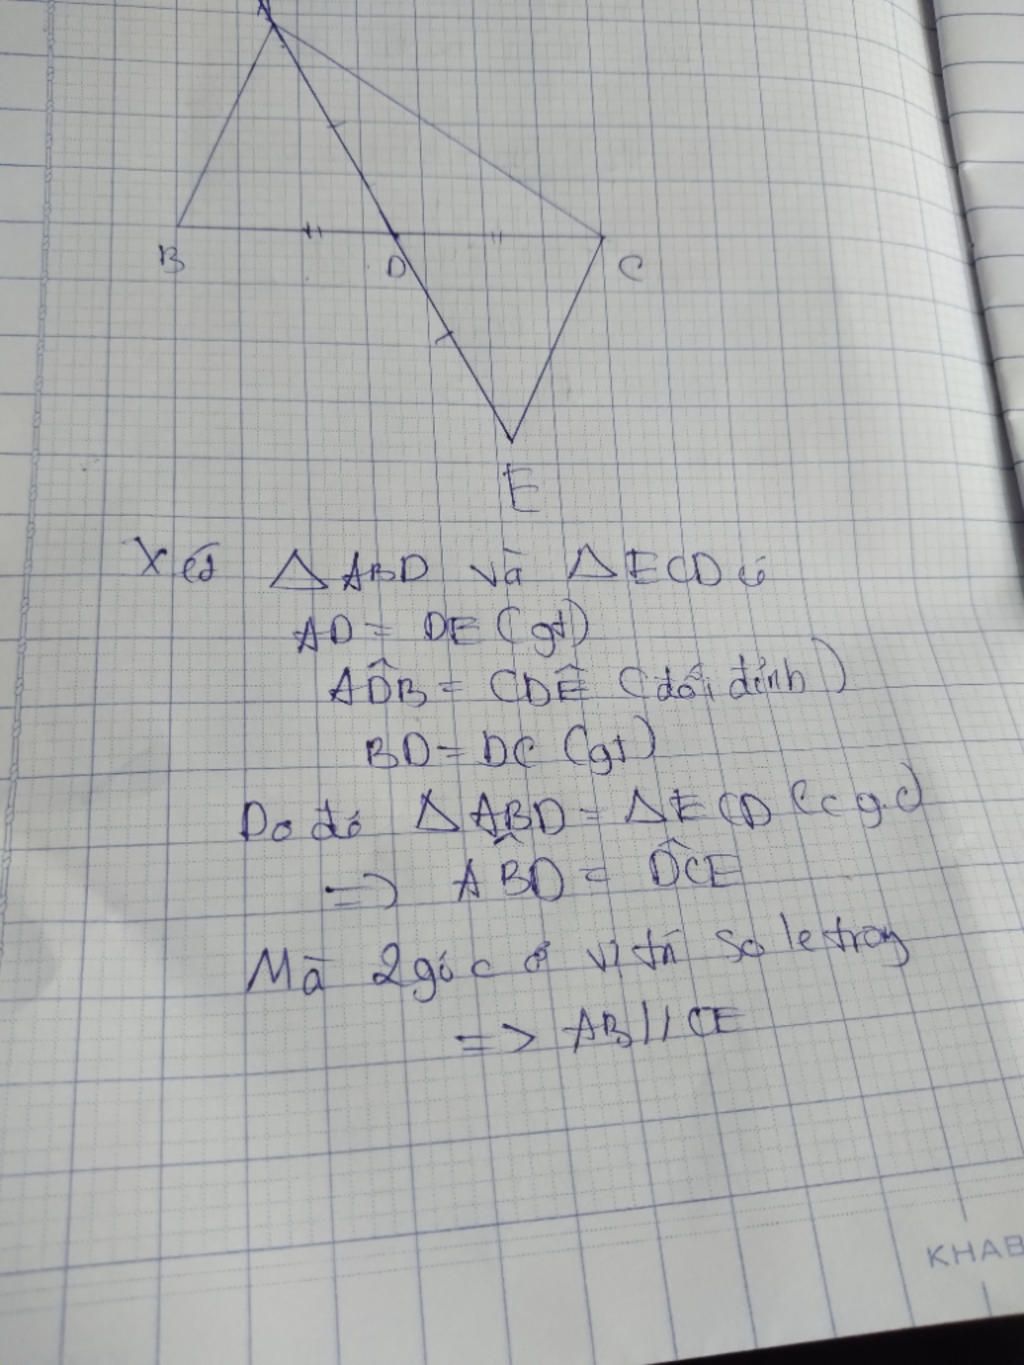 A
B
D
C
E
Xét △ABD và △ECD có
AD = DE (gt)
AD̂B = CDÊ (đối đỉnh)
BD = DC (gt)
Do đó △ABD = △ECD (c.g.c)
=> AB̂D = DĈE
Mà 2 góc ở vị trí so le trong
=> AB // CE
KHAB